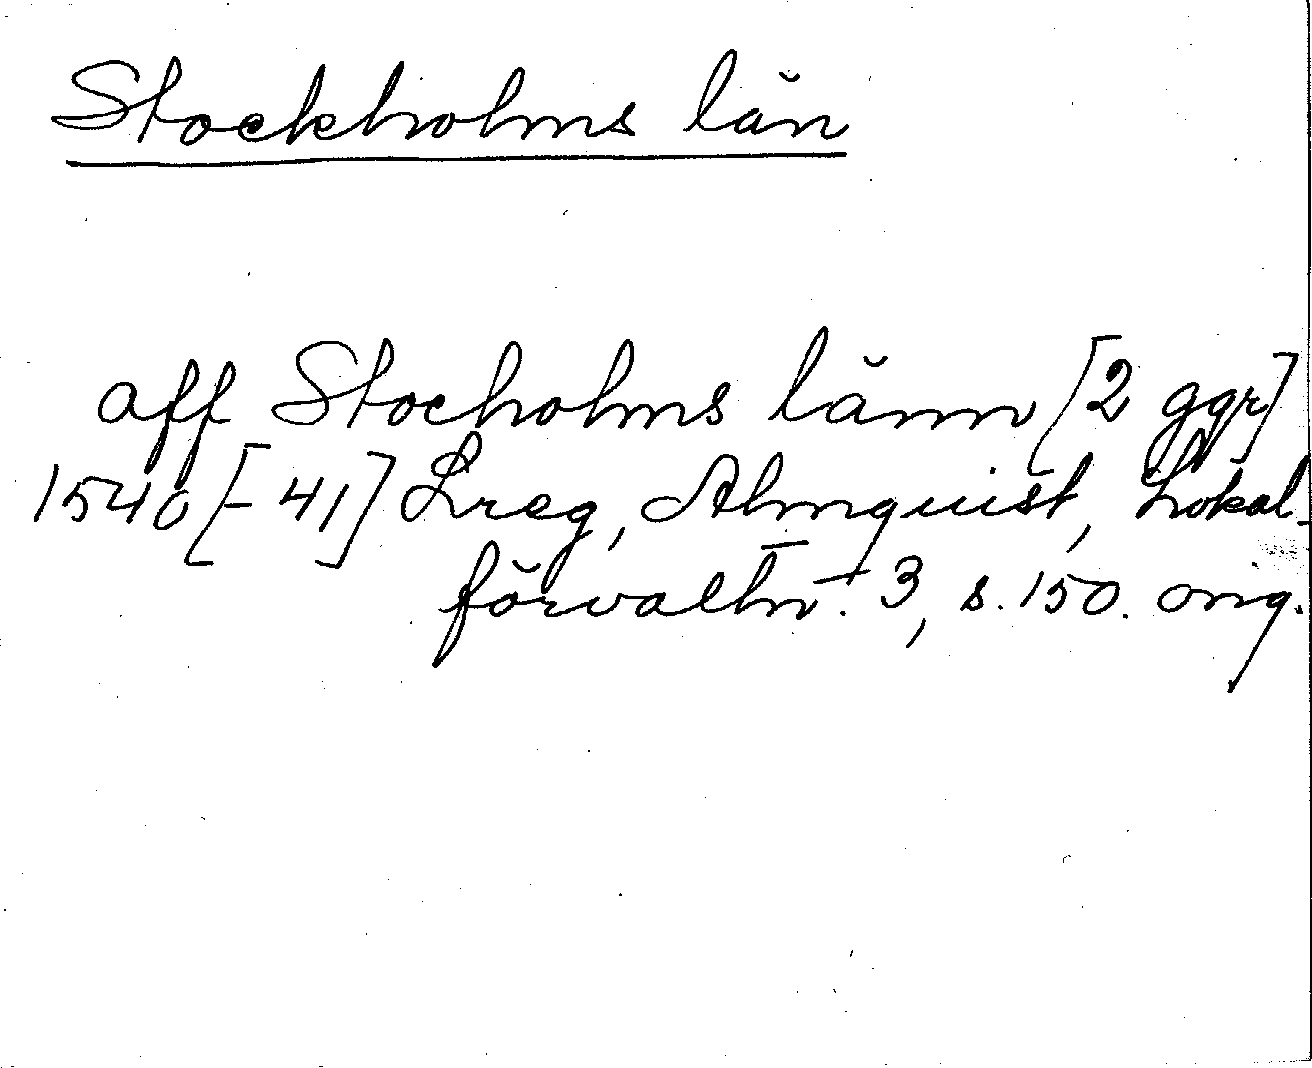 Stockholms län
aff Stocholms länn [2 ggr]
1540 [- 41] Lreg, Almquist, Lokal-
förvaltn. 3, s. 150. omg.